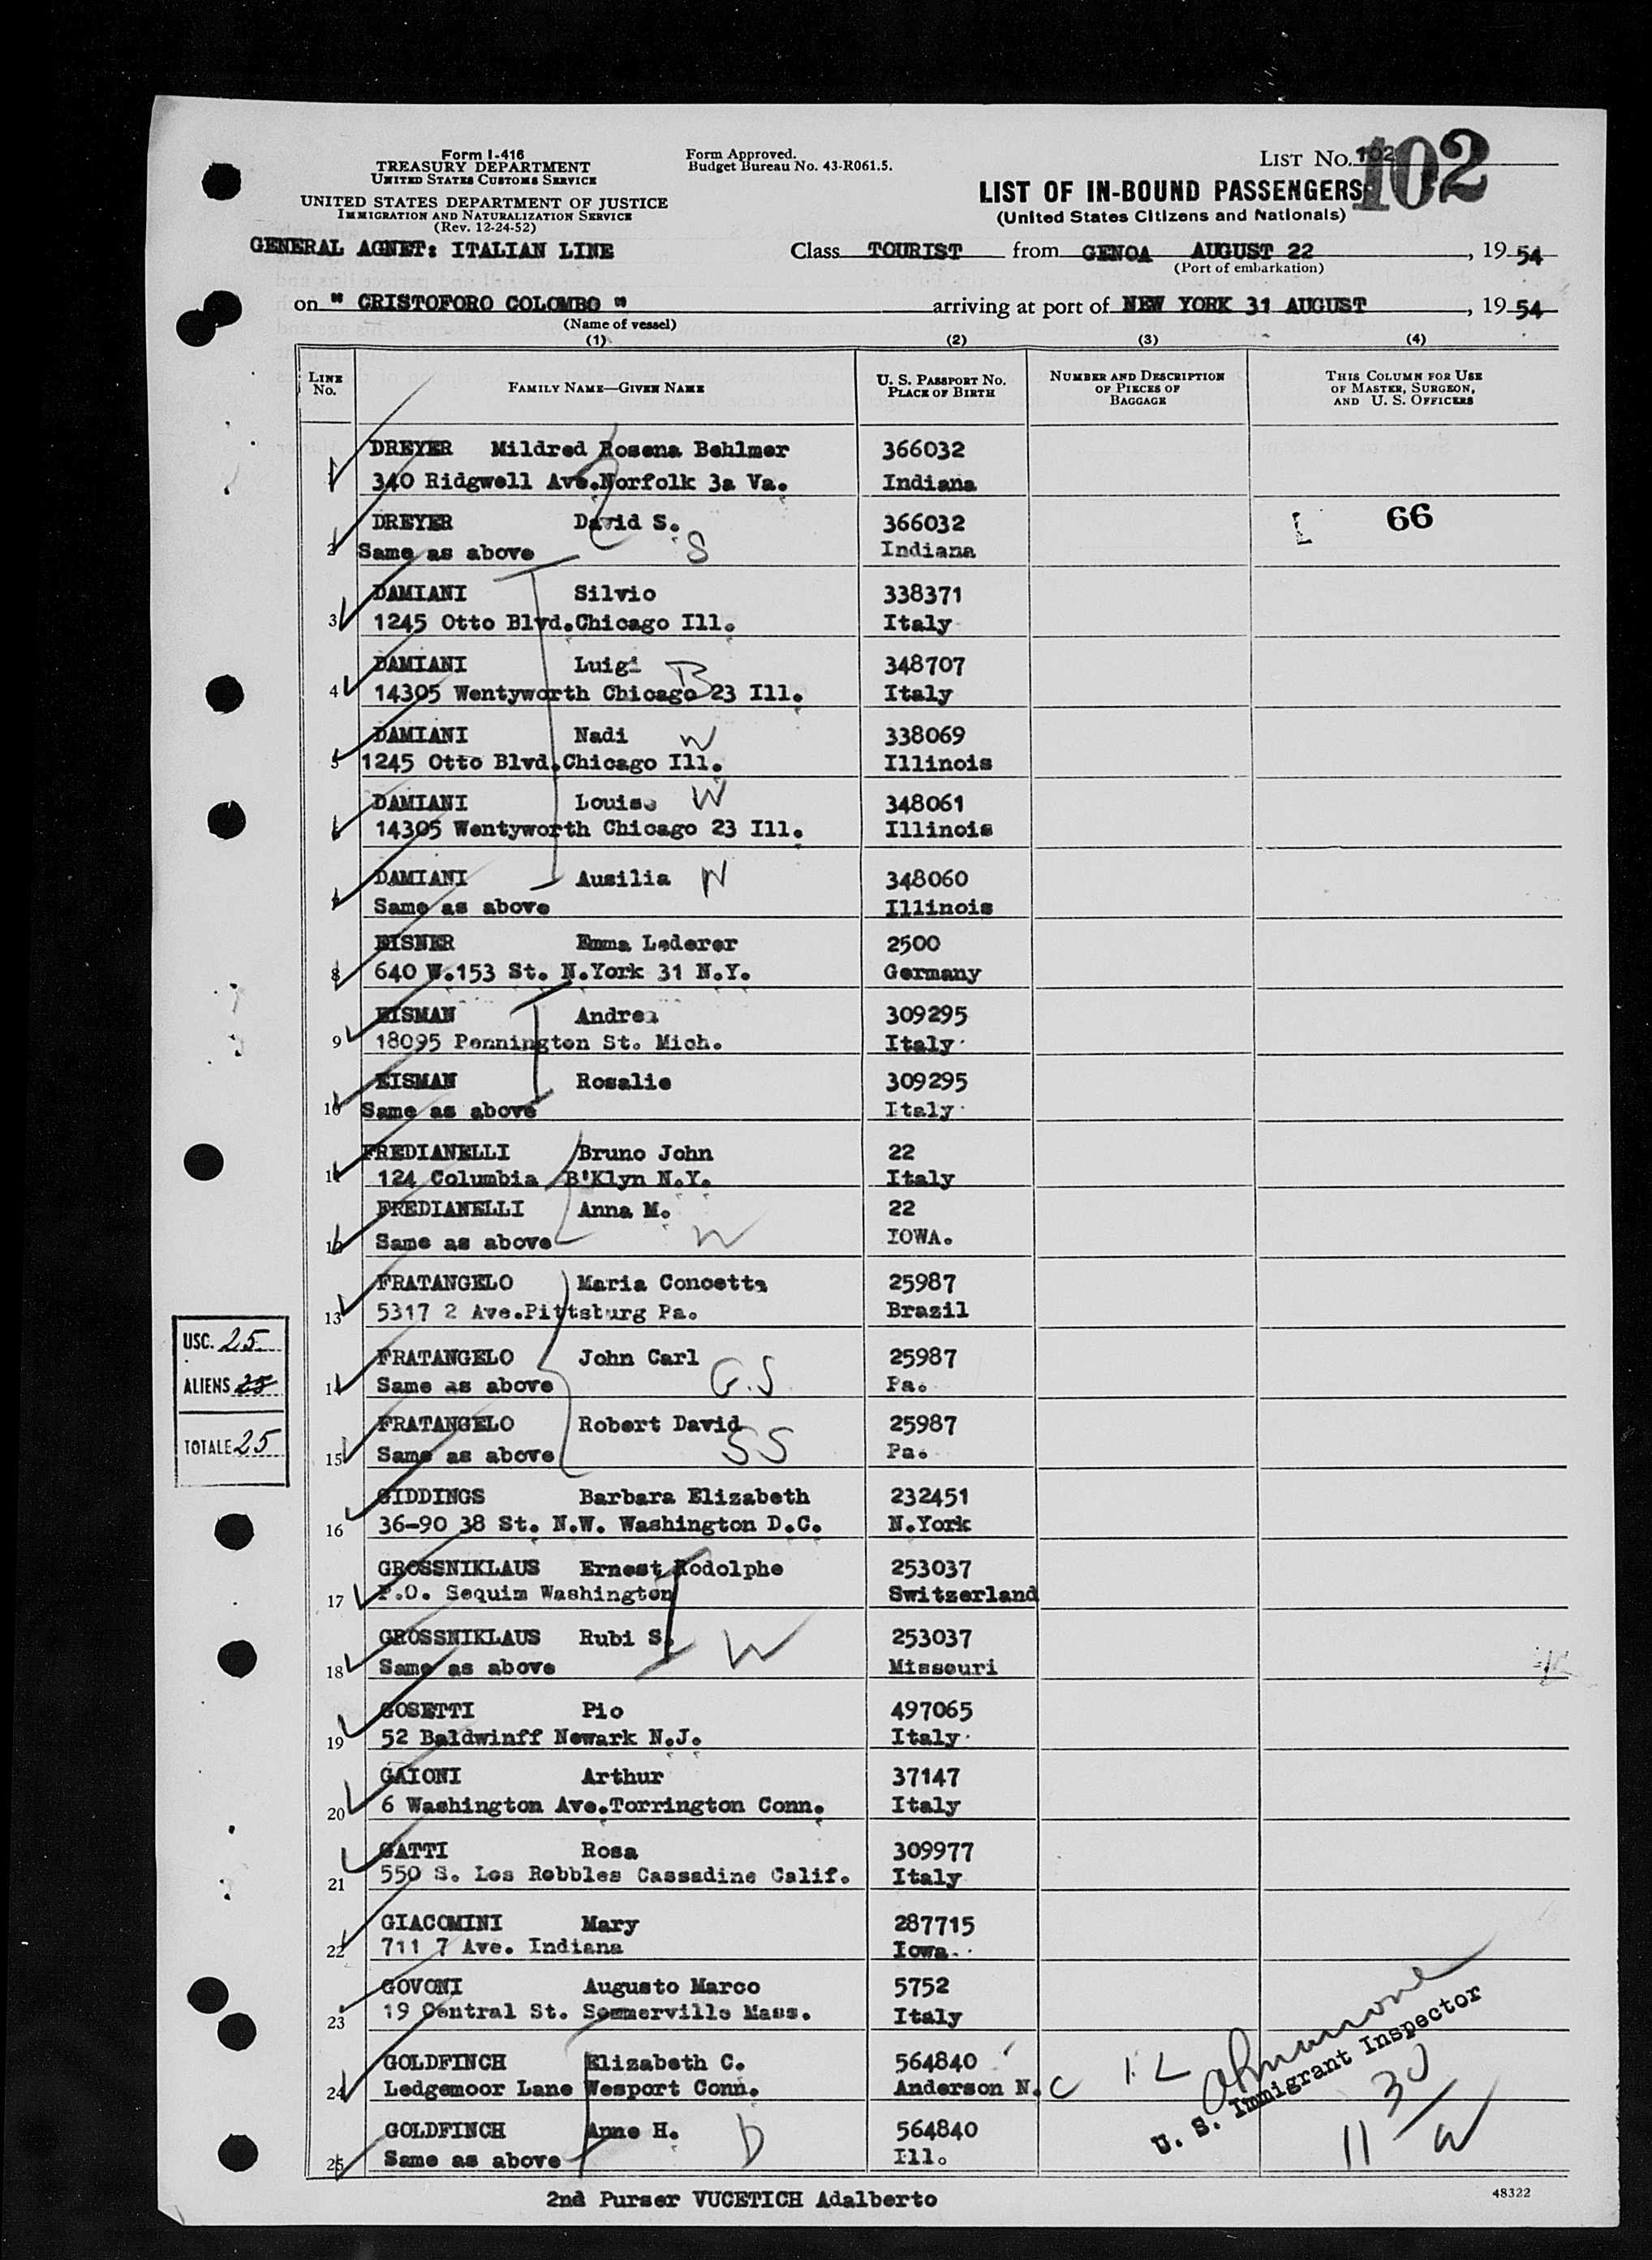 Form I-416
TREASURY DEPARTMENT
UNITED STATES CUSTOMS SERVICE
UNITED STATES DEPARTMENT OF JUSTICE
IMMIGRATION AND NATURALIZATION SERVICE
(Rev. 12-24-52)
Form Approved.
Budget Bureau No. 43-R061.5.
LIST NO. 102 102
LIST OF IN-BOUND PASSENGERS
(United States Citizens and Nationals)
GENERAL AGNET: ITALIAN LINE Class TOURIST from GENOA AUGUST 22, 19 54
(Port of embarkation)
on " CRISTOFORO COLOMBO " arriving at port of NEW YORK 31 AUGUST, 19 54
(Name of vessel)
(1) (2) (3) (4)
LINE NO. FAMILY NAME—GIVEN NAME U. S. PASSPORT NO. PLACE OF BIRTH NUMBER AND DESCRIPTION OF PIECES OF BAGGAGE THIS COLUMN FOR USE OF MASTER, SURGEON, AND U. S. OFFICERS
DREYER Mildred Rosena Behlmer 366032
1 340 Ridgwell Ave.Norfolk 3a Va. Indiana
DREYER David S. 366032 66
2 Same as above S Indiana
DAMIANI Silvio 338371
3 1245 Otto Blvd.Chicago Ill. Italy
DAMIANI Luigi B 348707
4 14305 Wentyworth Chicago 23 Ill. Italy
DAMIANI Nadi W 338069
5 1245 Otto Blvd.Chicago Ill. Illinois
DAMIANI Louise W 348061
6 14305 Wentyworth Chicago 23 Ill. Illinois
DAMIANI Ausilia W 348060
7 Same as above Illinois
EISNER Emma Lederer 2500
8 640 W.153 St. N.York 31 N.Y. Germany
EISMAN Andrea 309295
9 18095 Pennington St. Mich. Italy
EISMAN Rosalie 309295
10 Same as above Italy
FREDIANELLI Bruno John 22
11 124 Columbia B'Klyn N.Y. Italy
FREDIANELLI Anna M. 22
12 Same as above W IOWA.
FRATANGELO Maria Concetta 25987
13 5317 2 Ave.Pittsburg Pa. Brazil
FRATANGELO John Carl 25987
14 Same as above G.S. Pa.
FRATANGELO Robert David 25987
15 Same as above SS Pa.
USC. 25
ALIENS 25
TOTALE 25
GIDDINGS Barbara Elizabeth 232451
16 36-90 38 St. N.W. Washington D.C. N.York
GROSSNIKLAUS Ernest Rodolphe 253037
17 P.O. Sequim Washington Switzerland
GROSSNIKLAUS Rubi S. 253037
18 Same as above W Missouri
GOSETTI Pio 497065
19 52 Baldwinff Newark N.J. Italy
GAIONI Arthur 37147
20 6 Washington Ave.Torrington Conn. Italy
GATTI Rosa 309977
21 550 S. Los Robbles Cassadine Calif. Italy
GIACOMINI Mary 287715
22 711 7 Ave. Indiana Iowa.
GOVONI Augusto Marco 5752
23 19 Central St. Sommerville Mass. Italy
GOLDFINCH Elizabeth C. 564840
24 Ledgemoor Lane Wesport Conn. Anderson N.C
GOLDFINCH Anne H. 564840
25 Same as above D Ill.
U. S. Immigrant Inspector
11 30
W
2nd Purser VUCETICH Adalberto
48322